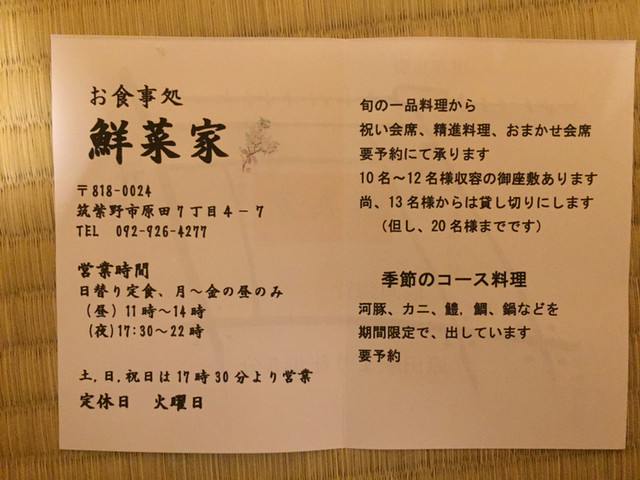 お食事処
鮮菜家
〒818-0024
筑紫野市原田7丁目4-7
TEL 092-926-4277
営業時間
日替り定食、月~金の昼のみ
(昼) 11時~14時
(夜)17:30~22時
土,日,祝日は17時30分より営業
定休日 火曜日
旬の一品料理から
祝い会席、精進料理、おまかせ会席
要予約にて承ります
10名~12名様収容の御座敷あります
尚、13名様からは貸し切りにします
(但し、20名様までです)
季節のコース料理
河豚、カニ、鱧,鯛、鍋などを
期間限定で、出しています
要予約